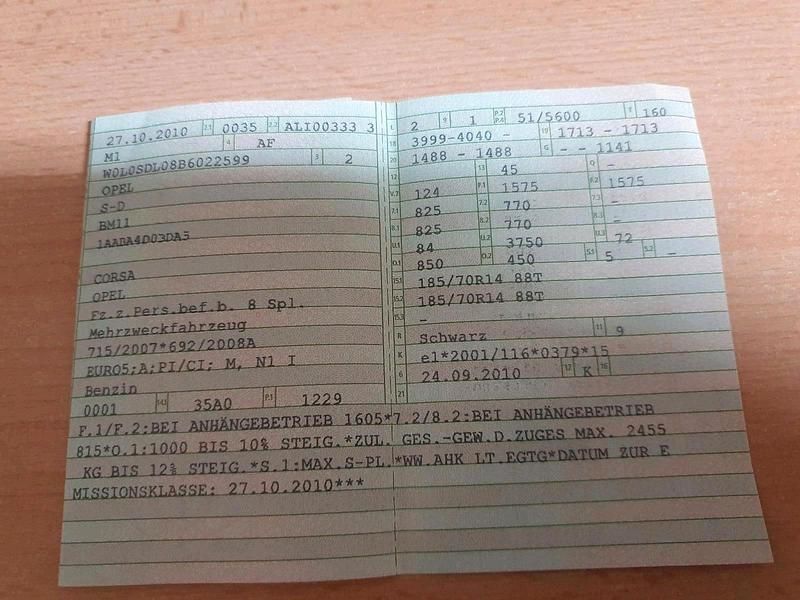 27.10.2010 2.1 0035 2.2 ALI00333 3
M1 4 AF
W0L0SDL08B6022599 3 2
OPEL
S-D
BM11
1AABA4D03DA5
CORSA
OPEL
Fz.z.Pers.bef.b. 8 Spl.
Mehrzweckfahrzeug
715/2007*692/2008A
EURO5;A;PI/CI; M, N1 I
Benzin
0001 14.1 35A0 P.1 1229
L 2 9 1 P.2 P.4 51/5600 T 160
18 3999-4040 - 19 1713 - 1713
20 1488 - 1488 G - - 1141
12 - 13 45 Q -
V.7 124 F.1 1575 F.2 1575
7.1 825 7.2 770 7.3 -
8.1 825 8.2 770 8.3 -
U.1 84 U.2 3750 U.3 72
O.1 850 O.2 450 S.1 5 S.2 -
15.1 185/70R14 88T
15.2 185/70R14 88T
15.3 -
R Schwarz 11 9
K e1*2001/116*0379*15
6 24.09.2010 17 K 16
21
F.1/F.2:BEI ANHÄNGEBETRIEB 1605*7.2/8.2:BEI ANHÄNGEBETRIEB
815*O.1:1000 BIS 10% STEIG.*ZUL. GES.-GEW.D.ZUGES MAX. 2455
KG BIS 12% STEIG.*S.1:MAX.S-PL.*WW.AHK LT.EGTG*DATUM ZUR E
MISSIONSKLASSE: 27.10.2010***